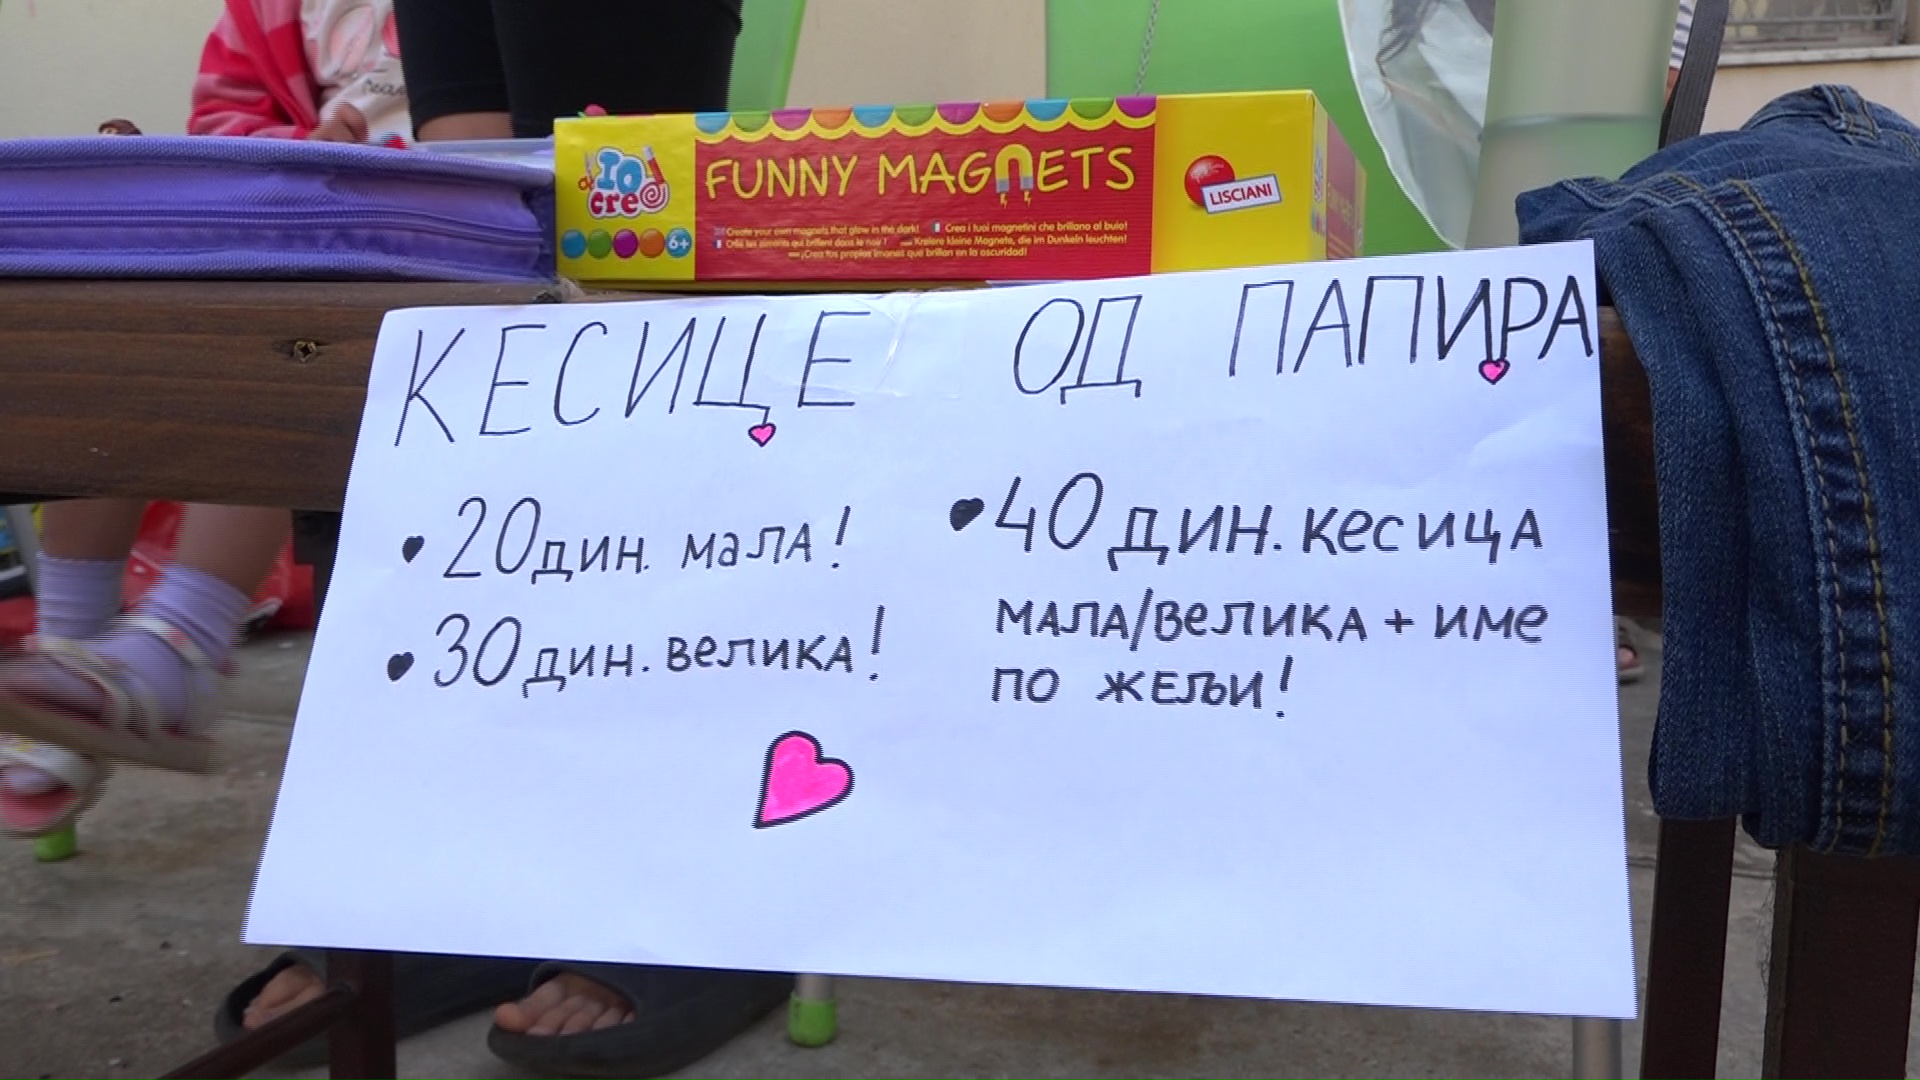 IQ
cre
6+
FUNNY MAGNETS
Create your own magnets that glow in the dark! Crea i tuoi magnetini che brillano al buio!
Crée tes aimants qui brillent dans le noir! Kreiere kleine Magnete, die im Dunkeln leuchten!
¡Crea tus propios imanes que brillan en la oscuridad!
LISCIANI
КЕСИЦЕ ОД ПАПИРА
20 дин. мала!
30 дин. велика!
40 дин. кесица
мала/велика + име
по жељи!